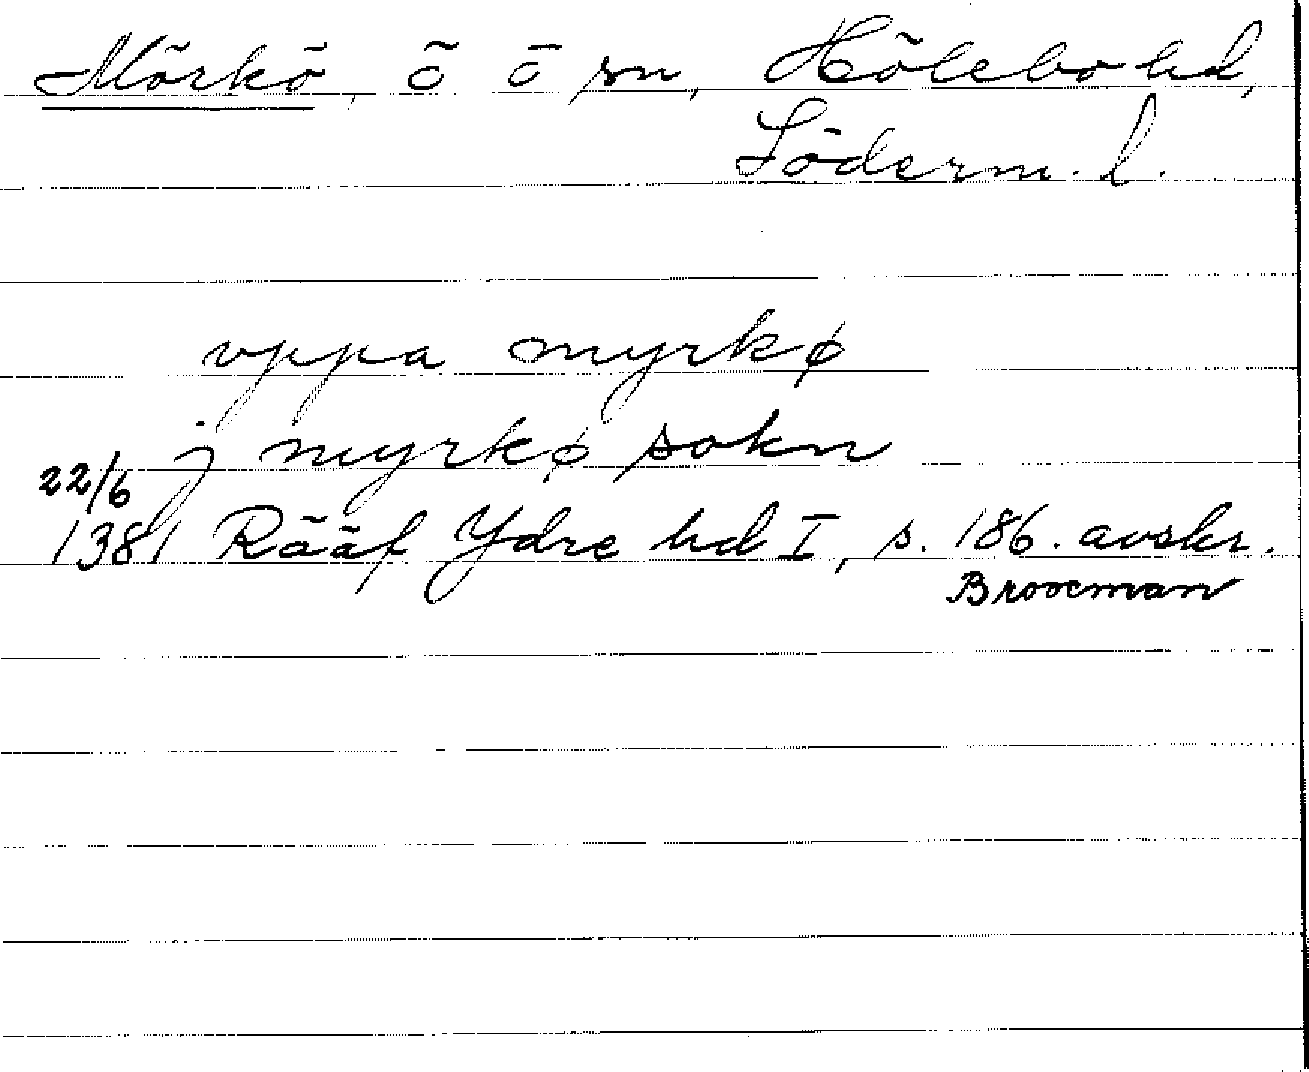 Mörkö, ö o sn, Hölebo hd,
Söderm. l.
vppa myrkø
j myrkø sokn
22/6
1381 Rääf Ydre hd I, s. 186. avskr.
Broocman